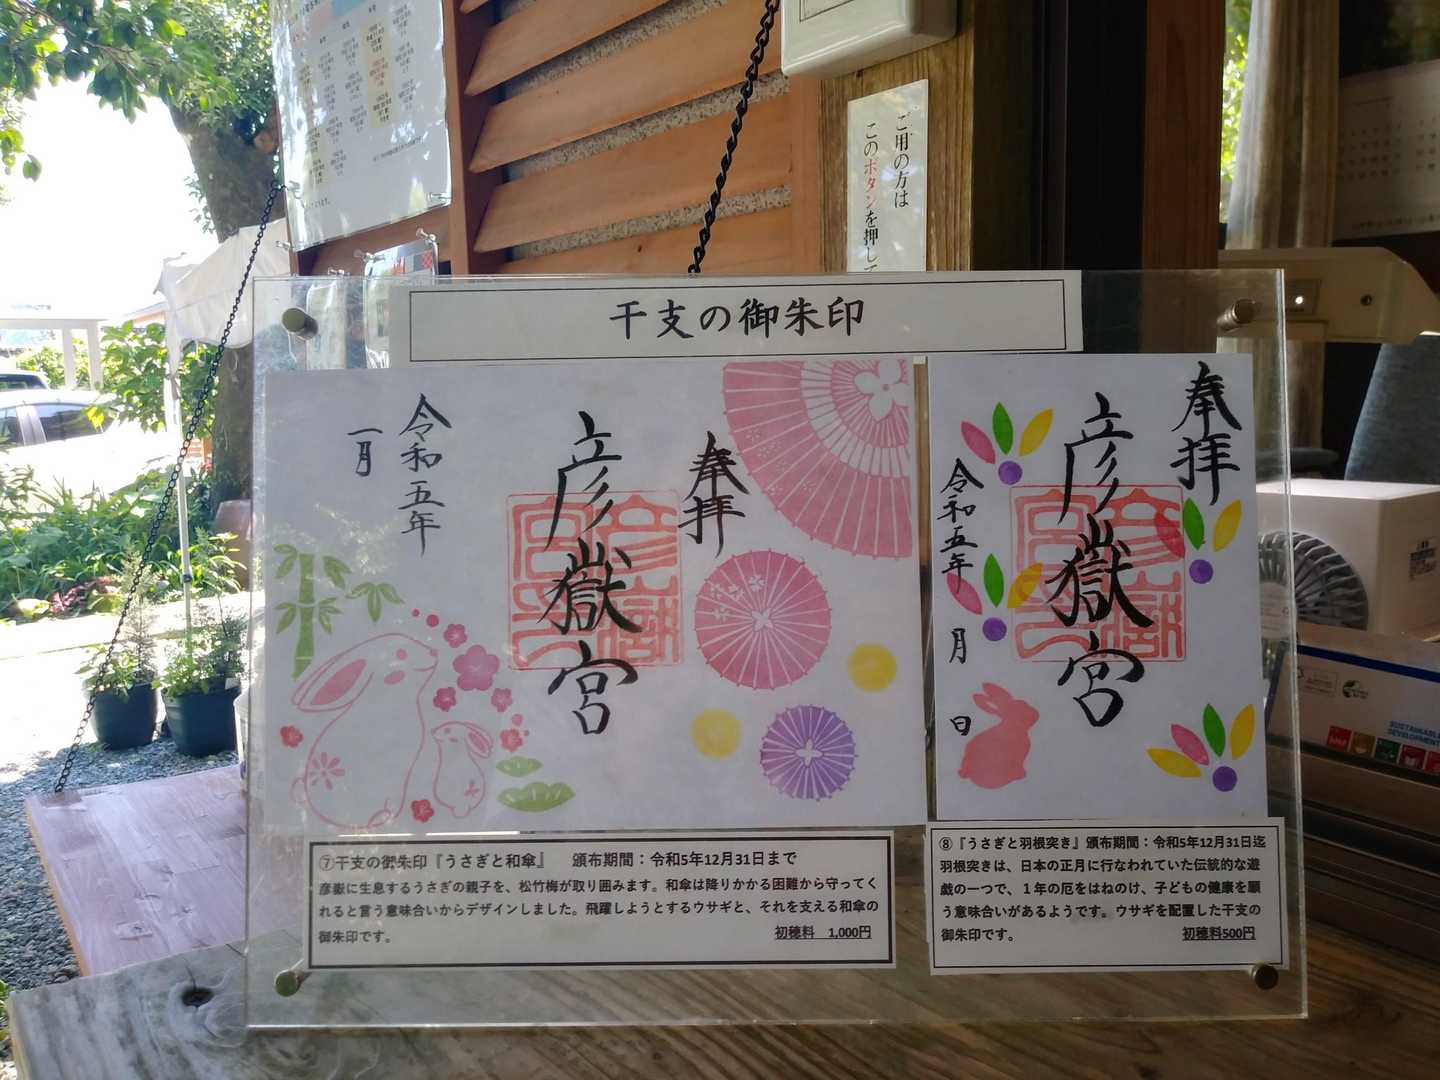 ご用の方は
このボタンを押して
干支の御朱印
奉拝
彦嶽宮
令和五年
一月
奉拝
彦嶽宮
令和五年 月 日
⑦干支の御朱印『うさぎと和傘』 頒布期間：令和5年12月31日まで
彦嶽に生息するうさぎの親子を、松竹梅が取り囲みます。和傘は降りかかる困難から守ってく
れると言う意味合いからデザインしました。飛躍しようとするウサギと、それを支える和傘の
御朱印です。 初穂料 1,000円
⑧『うさぎと羽根突き』頒布期間：令和5年12月31日迄
羽根突きは、日本の正月に行なわれていた伝統的な遊
戯の一つで、１年の厄をはねのけ、子どもの健康を願
う意味合いがあるようです。ウサギを配置した干支の
御朱印です。 初穂料500円
SUSTAINABLE
DEVELOPMENT